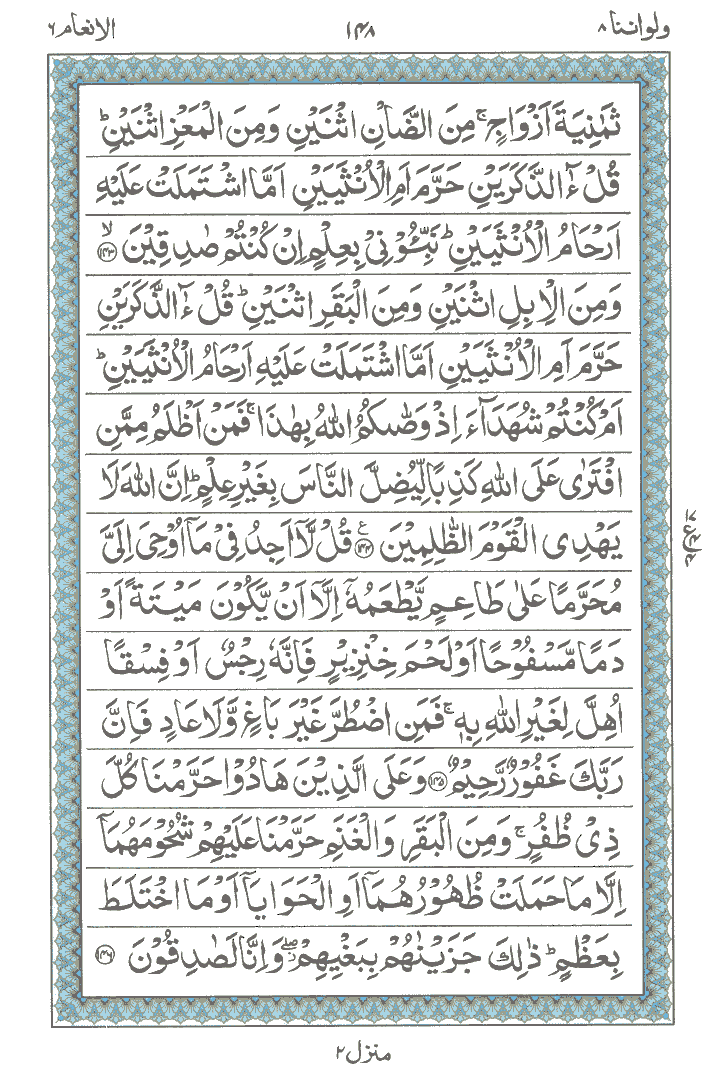 ولواننا ٨
١٤٨
الانعام ٦
ثَمٰنِيَةَ اَزْوَاجٍ ۚ مِنَ الضَّاْنِ اثْنَيْنِ وَمِنَ الْمَعْزِ اثْنَيْنِ ؕ
قُلْ ءٰٓالذَّكَرَيْنِ حَرَّمَ اَمِ الْاُنْثَيَيْنِ اَمَّا اشْتَمَلَتْ عَلَيْهِ
اَرْحَامُ الْاُنْثَيَيْنِ ؕ نَبِّـُٔوْنِيْ بِعِلْمٍ اِنْ كُنْتُمْ صٰدِقِيْنَ ۙ ﴿۱۴۳﴾
وَمِنَ الْاِبِلِ اثْنَيْنِ وَمِنَ الْبَقَرِ اثْنَيْنِ ؕ قُلْ ءٰٓالذَّكَرَيْنِ
حَرَّمَ اَمِ الْاُنْثَيَيْنِ اَمَّا اشْتَمَلَتْ عَلَيْهِ اَرْحَامُ الْاُنْثَيَيْنِ ؕ
اَمْ كُنْتُمْ شُهَدَآءَ اِذْ وَصّٰىكُمُ اللّٰهُ بِهٰذَا ۚ فَمَنْ اَظْلَمُ مِمَّنِ
افْتَرٰى عَلَى اللّٰهِ كَذِبًا لِّيُضِلَّ النَّاسَ بِغَيْرِ عِلْمٍ ؕ اِنَّ اللّٰهَ لَا
يَهْدِى الْقَوْمَ الظّٰلِمِيْنَ ﴿۱۴۴﴾ ع قُلْ لَّآ اَجِدُ فِيْ مَآ اُوْحِيَ اِلَيَّ
مُحَرَّمًا عَلٰى طَاعِمٍ يَّطْعَمُهٗٓ اِلَّآ اَنْ يَّكُوْنَ مَيْتَةً اَوْ
دَمًا مَّسْفُوْحًا اَوْ لَحْمَ خِنْزِيْرٍ فَاِنَّهٗ رِجْسٌ اَوْ فِسْقًا
اُهِلَّ لِغَيْرِ اللّٰهِ بِهٖ ۚ فَمَنِ اضْطُرَّ غَيْرَ بَاغٍ وَّلَا عَادٍ فَاِنَّ
رَبَّكَ غَفُوْرٌ رَّحِيْمٌ ﴿۱۴۵﴾ وَعَلَى الَّذِيْنَ هَادُوْا حَرَّمْنَا كُلَّ
ذِيْ ظُفُرٍ ۚ وَمِنَ الْبَقَرِ وَالْغَنَمِ حَرَّمْنَا عَلَيْهِمْ شُحُوْمَهُمَآ
اِلَّا مَا حَمَلَتْ ظُهُوْرُهُمَآ اَوِ الْحَوَايَآ اَوْ مَا اخْتَلَطَ
بِعَظْمٍ ؕ ذٰلِكَ جَزَيْنٰهُمْ بِبَغْيِهِمْ ۖ وَاِنَّا لَصٰدِقُوْنَ ﴿۱۴۶﴾
منزل ٢